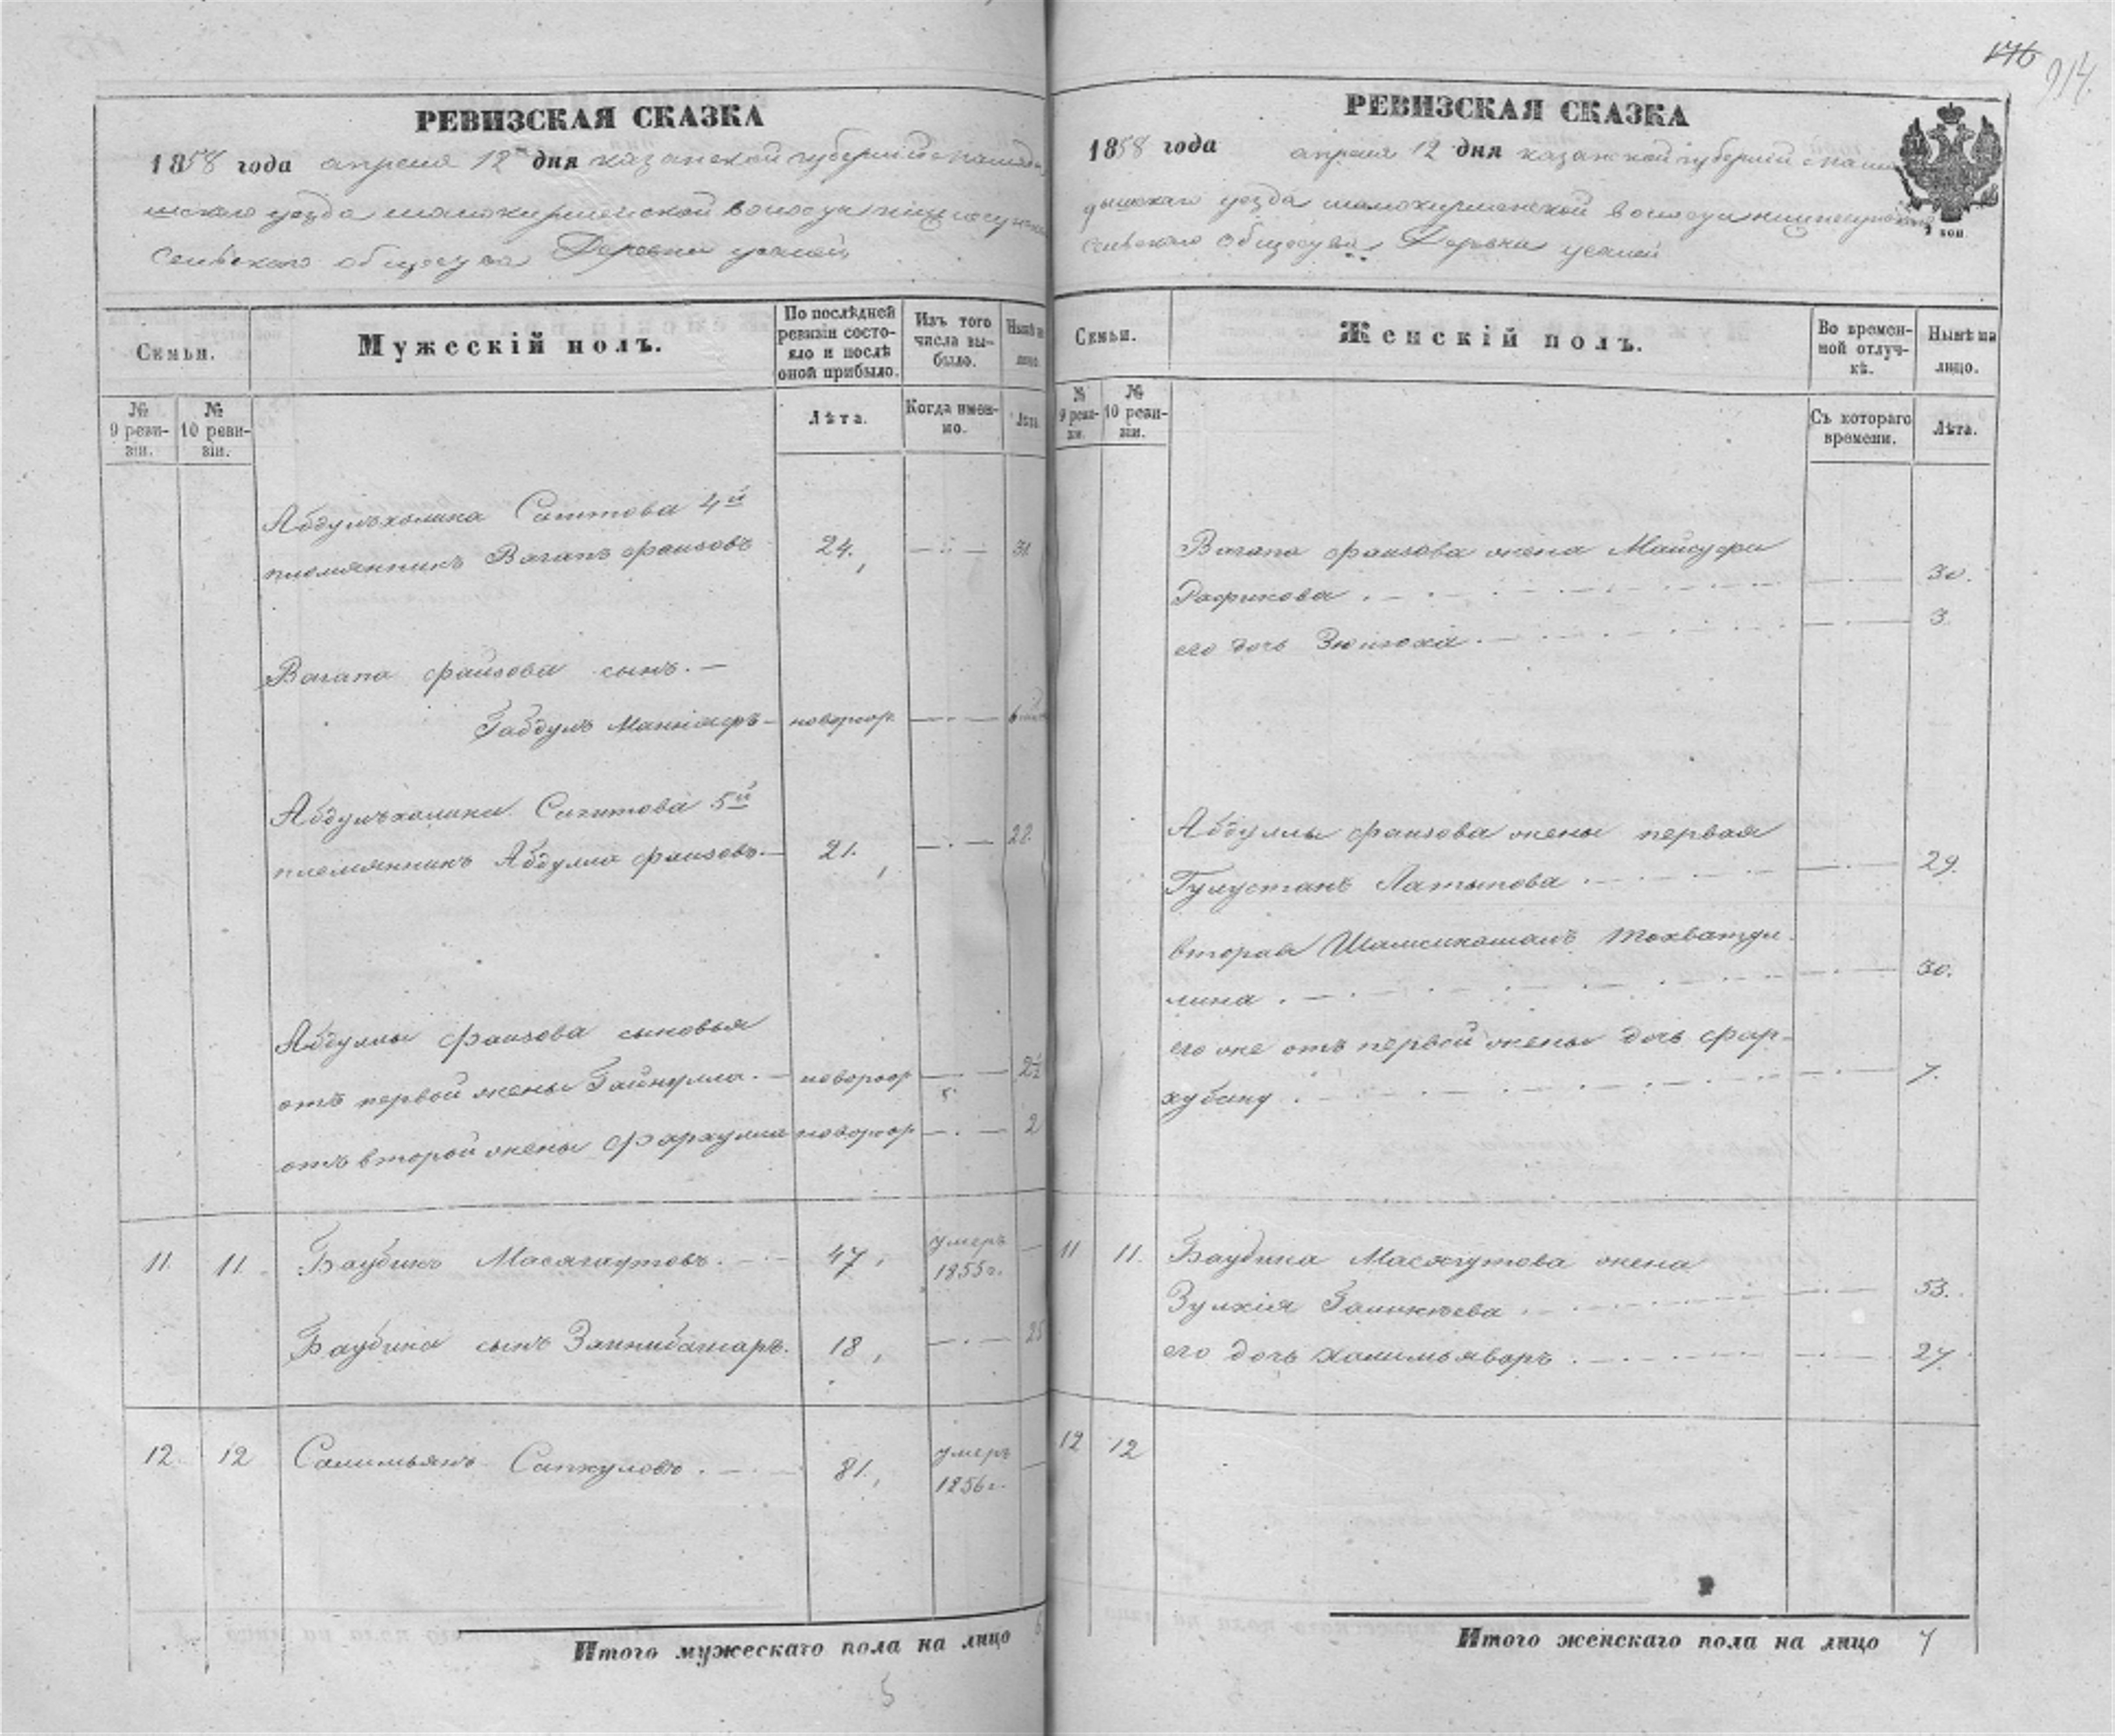 176
914.
РЕВИЗСКАЯ СКАЗКА
1858 года апреля 12 дня казанской губернiи
уезда волости
Сельскаго общества Деревни
Семьи.
Мужескiй полъ.
По послѣдней ревизiи состояло и послѣ оной прибыло.
Изъ того числа выбыло.
Нынѣ на лицо.
№ 9 ревизiи.
№ 10 ревизiи.
Лѣта.
Когда именно.
Лѣта
Абдулъхалика Сагитова 4й
племянникъ Вагапъ Фаизовъ 24. 31.
Вагапа Фаизова сынъ.
Габдулъ новорож.
Абдулъхалика Сагитова 5й
племянникъ Абдулла Фаизовъ. 21. 28.
Абдуллы Фаизова сыновья
отъ первой жены Гайнулла. новорож 2½
отъ второй жены Фархулла новорож 2
11. 11. Баудинъ Масягутовъ. 47, умеръ 1855 г.
Баудина сынъ Зяинибашаръ. 18, 25
12. 12 Салимьянъ Сапкуловъ. 81, умеръ 1856 г.
Итого мужескаго пола на лицо
5
РЕВИЗСКАЯ СКАЗКА
1858 года апреля 12 дня казанской губернiи
уезда волости
Сельскаго общества Деревни
Семьи.
Женскiй полъ.
Во временной отлучкѣ.
Нынѣ на лицо.
№ 9 ревизiи.
№ 10 ревизiи.
Съ котораго времени.
Лѣта.
Вагапа Фаизова жена
Рафикова 30.
его дочь 3.
Абдуллы Фаизова жены первая
Гулустанъ Латыпова 29.
вторая Шамсикамалъ Мохватул-
лина 30.
его же отъ первой жены дочь Фар-
хубану 7.
11 11. Баудина Масягутова жена
Зулхiя Галикѣева 53.
его дочь Халимьяворъ 27.
12 12
Итого женскаго пола на лицо 7